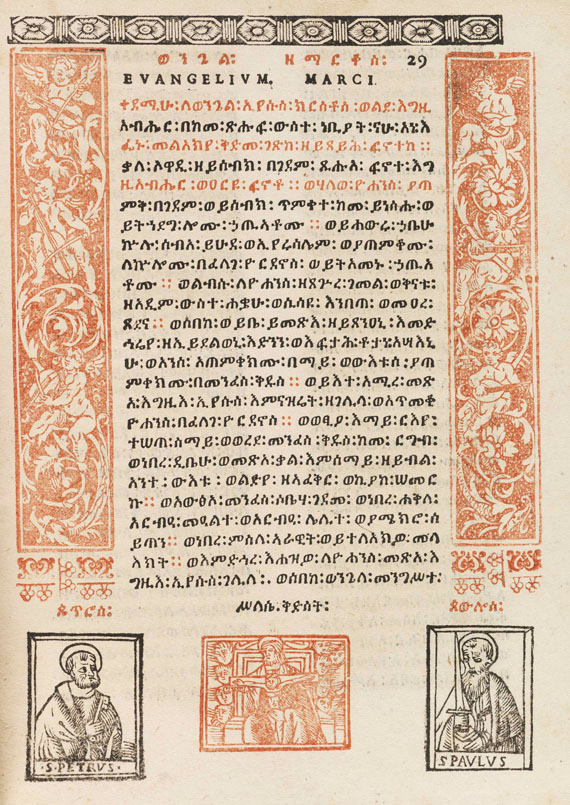 ወንጌል፡ ዘማርቆስ፡ 29
EVANGELIVM. MARCI
ቀደማሁ፡ ለወንጌል፡ ኢየሱስ፡ ክርስቶስ፡ ወልደ፡ እግዚ
አብሔር፡ በከመ፡ ጽሑፍ፡ ውስተ፡ ነቢያት፡ ናሁ፡ አነ፡እ
ፌኑ፡ መልአክየ፡ ቅድመ፡ ገጽከ፡ ዘይጸይሕ፡ ፍኖተከ ።
ቃለ፡ ዓዋዲ፡ ዘይሰብክ፡ በገዳም፡ ጺሑአ፡ ፍኖተ፡ እግ
ዚአብሔር፡ ወዐርዩ፡ ፍኖቶ ። ወሃለወ፡ ዮሐንስ፡ ያጠ
ምቅ፡ በገዳም፡ ወይሰብክ፡ ጥምቀተ፡ ከመ፡ ይነስሑ፡ ወ
ይትኀደግ፡ ሎሙ፡ ኃጢአቶሙ ። ወይሐውሩ፡ ኃቤሁ
ኵሉ፡ ሰብአ፡ ይሁዳ፡ ወኢየሩሳሌም፡ ወያጠምቆሙ፡
ለኵሎሙ፡ በፈለገ፡ ዮርዳኖስ፡ ወይትአመኑ፡ ኃጢአ
ቶሙ ። ወልብሱ፡ ለዮሐንስ፡ ዘጸጕረ፡ ገመል፡ ወቅናቱ፡
ዘአዲም፡ ውስተ፡ ሐቋሁ፡ ወሲሳዩ፡ አንበጣ፡ ወመዐረ፡
ጸደና ። ወሰበከ፡ ወይቤ፡ ይመጽእ፡ ዘይጸንዐኒ፡ እምድ
ኅሬየ፡
ሁ፡ ወአንሰ፡ አጠምቀክሙ፡ በማይ፡ ወውእቱሰ፡ ያጠ
ምቀክሙ፡ በመንፈስ፡ ቅዱስ ። ወይእተ፡ አሚረ፡ መጽ
አ፡ እግዚእ፡ ኢየሱስ፡ እምናዝሬት፡ ዘገሊላ፡ ወአጥመቆ
ዮሐንስ፡ በፈለገ፡ ዮርዳኖስ ። ወወፂኦ፡ እማይ፡ ርእየ፡
ተሠጠ፡ ሰማይ፡ ወወረደ፡ መንፈስ፡ ቅዱስ፡ ከመ፡ ርግብ፡
ወነበረ፡ ዲቤሁ፡ ወመጽአ፡ ቃል፡ እምሰማይ፡ ዘይብል፡
አንተ፡ ውእቱ፡ ወልድየ፡ ዘአፈቅር፡ ወኪያከ፡ ሠመር
ኩ ። ወአውፅኦ፡ መንፈስ፡ ሶቤሃ፡ ገዳመ፡ ወነበረ፡ ሐቅለ፡
አርብዓ፡ መዓልተ፡ ወአርብዓ፡ ሌሊተ፡ ወያሜክሮ፡ ሰ
ይጣን ። ወነበረ፡ ምስለ፡ አራዊት፡ ወይተልእክዎ፡ መላ
እክት ። ወእምድኅረ፡ እሐዝዎ፡ ለዮሐንስ፡ መጽአ፡ እ
ግዚእ፡ ኢየሱስ፡ ገሊላ ። ወሰበከ፡ ወንጌለ፡ መንግሥተ፡
ጴጥሮስ፡
ሥላሴ፡ ቅድስት፡
ጳውሎስ፡
S. PETRVS
S. PAVLVS